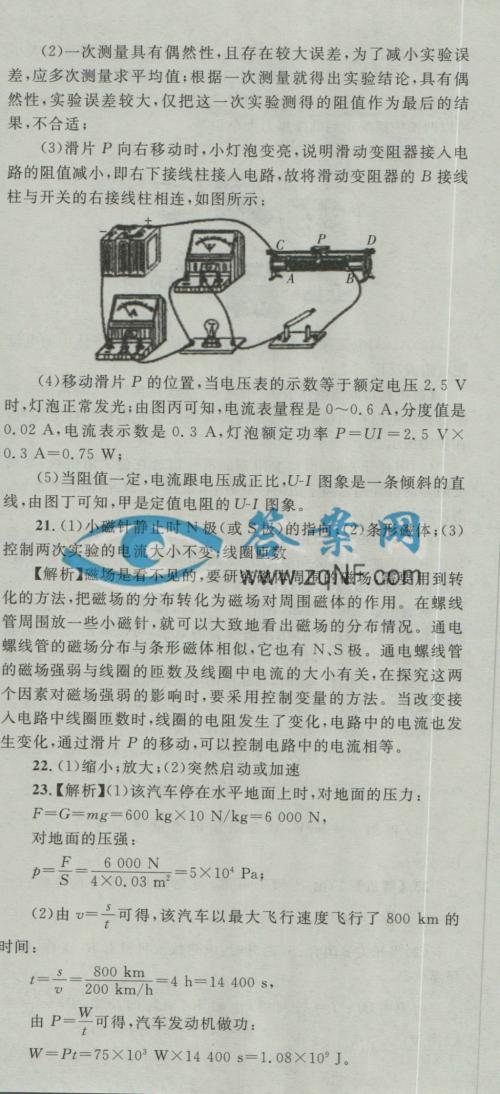 (2)一次测量具有偶然性,且存在较大误差,为了减小实验误
差,应多次测量求平均值;根据一次测量就得出实验结论,具有偶
然性,实验误差较大,仅把这一次实验测得的阻值作为最后的结
果,不合适;
(3)滑片 P 向右移动时,小灯泡变亮,说明滑动变阻器接入电
路的阻值减小,即右下接线柱接入电路,故将滑动变阻器的 B 接线
柱与开关的右接线柱相连,如图所示:
- +
C P D
A B
(4)移动滑片 P 的位置,当电压表的示数等于额定电压 2.5 V
时,灯泡正常发光;由图丙可知,电流表量程是 0~0.6 A,分度值是
0.02 A,电流表示数是 0.3 A,灯泡额定功率 P=UI=2.5 V×
0.3 A=0.75 W;
(5)当阻值一定,电流跟电压成正比,U-I 图象是一条倾斜的直
线,由图丁可知,甲是定值电阻的 U-I 图象。
21.(1)小磁针静止时 N 极(或 S 极)的指向;(2)条形磁体;(3)
控制两次实验的电流大小不变;线圈匝数
答案网
www.zqNF.com
【解析】磁场是看不见的,要研究磁体周围的磁场,需要用到转
化的方法,把磁场的分布转化为磁场对周围磁体的作用。在螺线
管周围放一些小磁针,就可以大致地看出磁场的分布情况。通电
螺线管的磁场分布与条形磁体相似,它也有 N、S 极。通电螺线管
的磁场强弱与线圈的匝数及线圈中电流的大小有关,在探究这两
个因素对磁场强弱的影响时,要采用控制变量的方法。当改变接
入电路中线圈匝数时,线圈的电阻发生了变化,电路中的电流也发
生变化,通过滑片 P 的移动,可以控制电路中的电流相等。
22.(1)缩小;放大;(2)突然启动或加速
23.【解析】(1)该汽车停在水平地面上时,对地面的压力:
F=G=mg=600 kg×10 N/kg=6 000 N,
对地面的压强:
p=F/S=6 000 N/(4×0.03 m²)=5×10⁴ Pa;
(2)由 v=s/t 可得,该汽车以最大飞行速度飞行了 800 km 的
时间:
t=s/v=800 km/(200 km/h)=4 h=14 400 s,
由 P=W/t 可得,汽车发动机做功:
W=Pt=75×10³ W×14 400 s=1.08×10⁹ J。